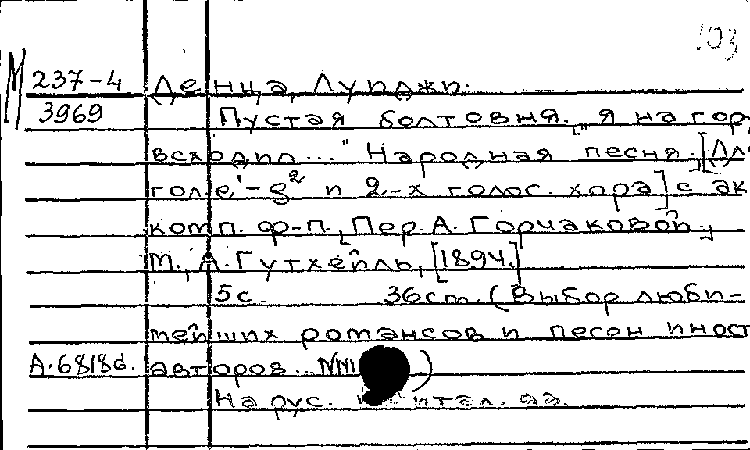 103
М 237-4 Денца, Луиджи.
3969 Пустая болтовня. ["Я на гор
всходил..." Народная песня. [Дл
гол. e'-g² и 2-х голос. хора] с ак
комп. ф-п. [Пер. А. Горчаковой.]
М., А. Гутхейль, [1894.]
5с. 36см. (Выбор люби-
тейших романсов и песен иност
А.6818d. авторов...
На рус. и итал. яз.